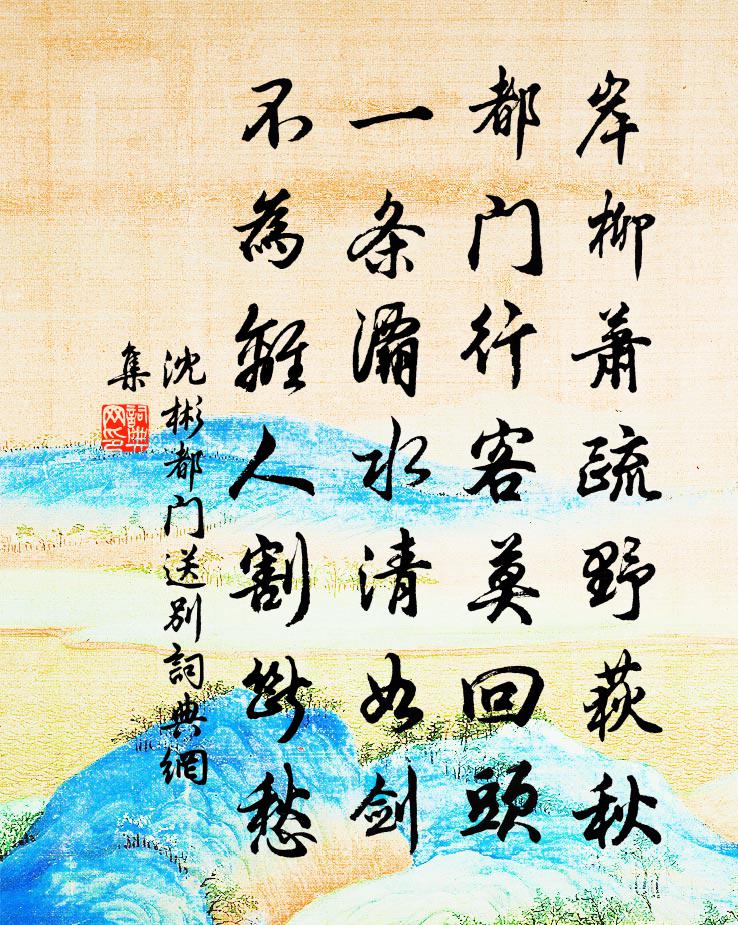 岸柳萧疏野荻秋
都门行客莫回頭
一条灞水清如剑
不為離人割斷愁
沈彬都门送别詞典網
集
詞典
网印